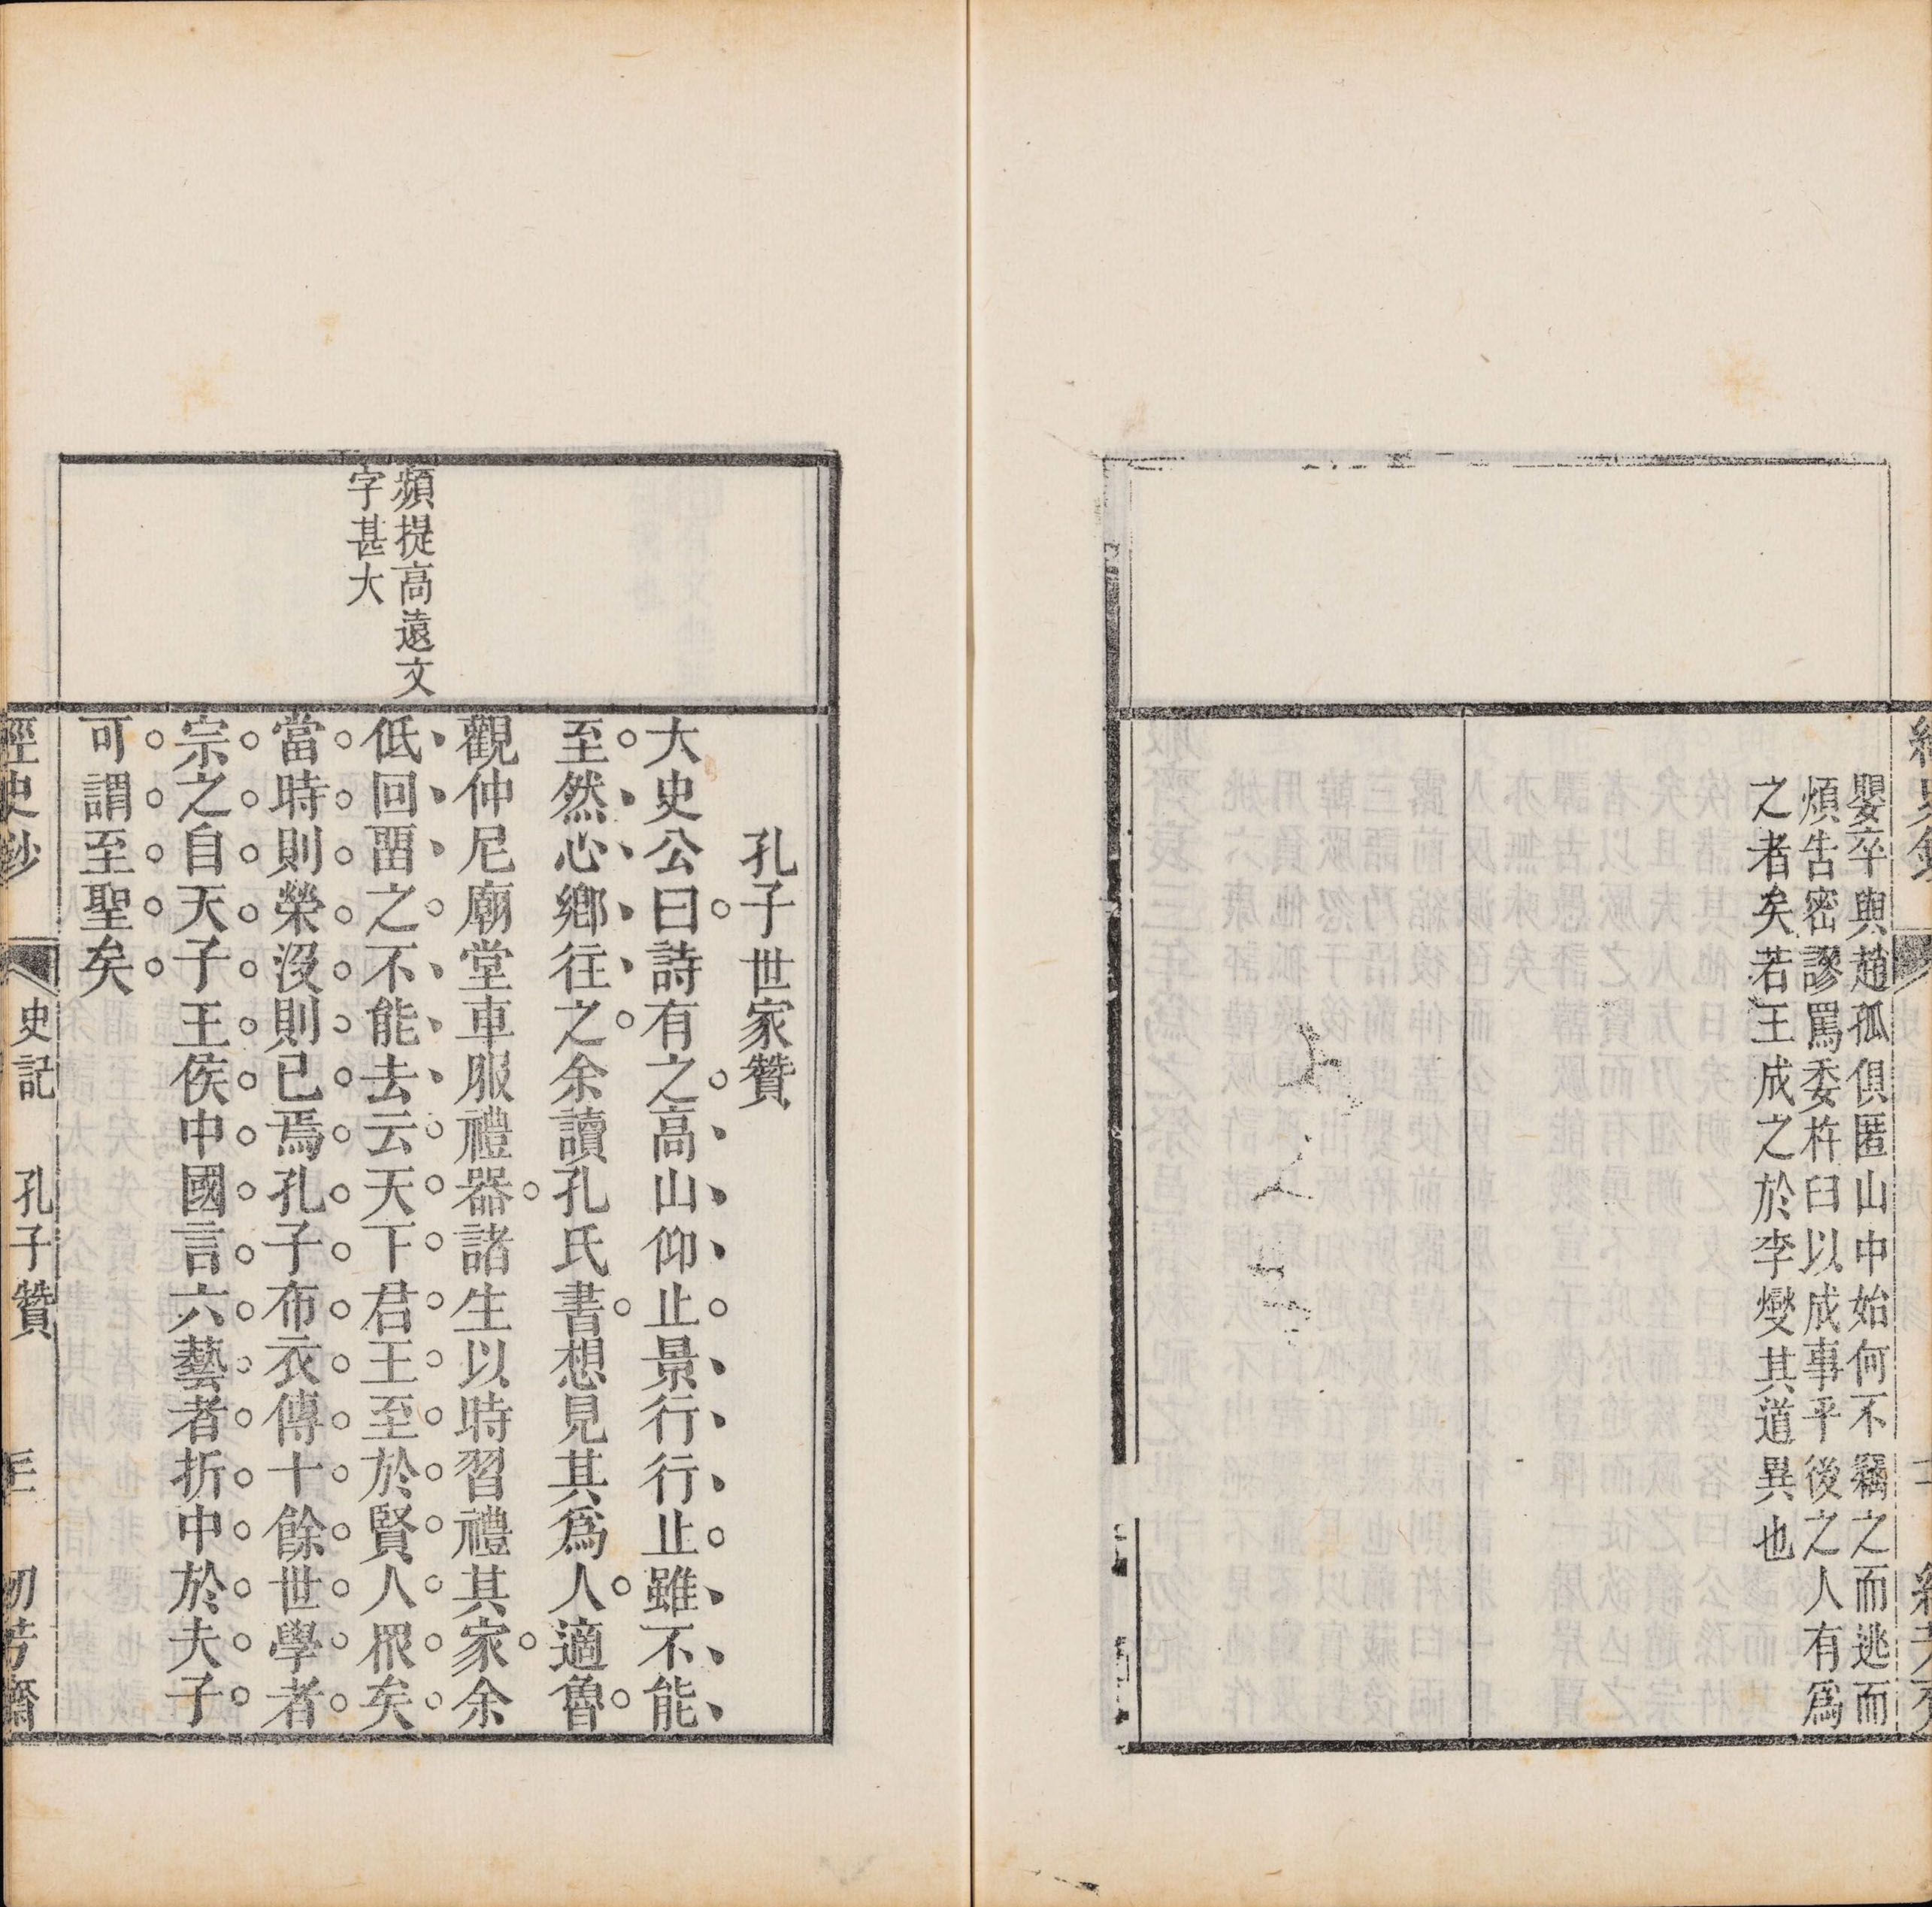 嬰卒與趙孤俱匿山中始何不竊之而逃而
煩告密謬罵委杵臼以成事乎後之人有爲
之者矣若王成之於李燮其道異也
頻提高遠文
字甚大
孔子世家贊
大史公曰詩有之高山仰止景行行止雖不能
至然心鄉往之余讀孔氏書想見其爲人適魯
觀仲尼廟堂車服禮器諸生以時習禮其家余
低回畱之不能去云天下君王至於賢人衆矣
當時則榮沒則已焉孔子布衣傳十餘世學者
宗之自天子王侯中國言六藝者折中於夫子
可謂至聖矣
經史鈔
史記
孔子贊